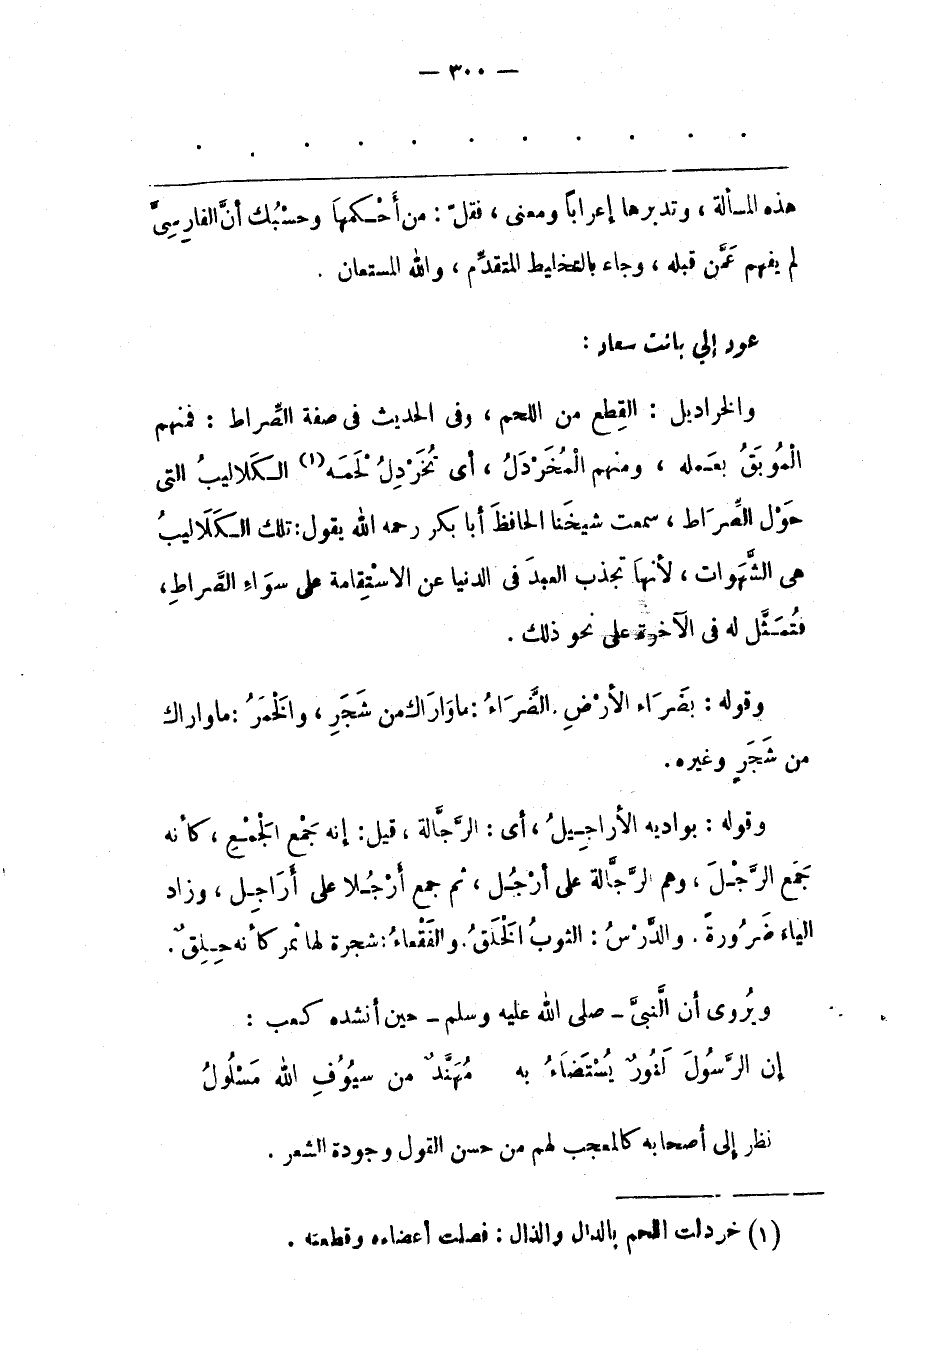 — ٣٠٠ —
. . . . . . . . . . .
هذه المسألة ، وتدبرها إعراباً ومعنى ، فقلّ : من أَحْكمهاَ وحسْبُك أنَّ الفارِسِىَّ
لم يفهم عَمَّن قبله ، وجاء بالتخليط المتقدِّم ، والله المستعان .
عود إلي بانت سعاد :
والخراديل : القِطع من اللحم ، وفى الحديث فى صفة الصِّراط : فمنهم
الْمُوبَقُ بعمله ، ومنهم الْمُخَرْدَلُ ، أى تُخَرْدِلُ لَحْمَه (١) الكَلاليبُ التى
حَوْل الصِّرَاط ، سمعت شيخَنا الحافظَ أبا بكر رحمه الله يقول : تلك الكَلَاليبُ
هى الشَّهَوات ، لأنهاَ تجذب العبدَ فى الدنيا عن الاسْتِقامة على سوَاءِ الصَّراطِ ،
فتُمَثَّل له فى الآخرة على نحو ذلك .
وقوله : بضَرَاء الأرْضِ . الضَّرَاءُ : ماوَارَاك من شَجَرٍ ، والْخَمَرُ : ماواراك
من شَجَرٍ وغيره .
وقوله : بواديه الأراجِيلُ ، أى : الرَّجَّالة ، قيل : إنه جَمْع الْجَمْعِ ، كأنه
جَمَع الرَّجْلَ ، وهم الرَّجَّالة على أرْجُل ، ثم جمع أَرْجُلا على أَرَاجِل ، وزاد
الياء ضَرُورةً . والدَّرْسُ : الثوبُ الْخَلَقُ . والفَقْعاءُ : شجرة لها ثمر كأنه حِلِقٌ .
ويُروى أن النَّبىَّ ـ صلى الله عليه وسلم ـ حين أنشده كعب :
إن الرَّسُولَ لَنُورٌ يُسْتَضَاءُ به مُهَنَّدٌ من سيُوُفِ الله مَسْلُولُ
نظر إلى أصحابه كالمعجب لهم من حسن القول وجودة الشعر .
(١) خردلت اللحم بالدال والذال : فصلت أعضاءه وقطعته .